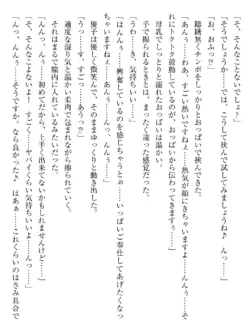 「そ、そんなことないでしょ？」
「そうでしょうか……では、こうして挟んで試してみましょうね♪　んっ……」
「お？　おふっ？」
チンポをしっかりとおっぱいで挟んできた。
「あんっ、んんぅ……すごい、熱気が顔にもきちゃいますね……んんぅ……そ
れにトクトク鼓動しているのが、おっぱいから伝わってきますぅ……」
母乳でしっとりと濡れたおっぱいは温かい。
手で握られるときとは、まったく違った感覚だった。
「うわ……き、気持ちいい……」
「はんんぅ……興奮しているのを感じちゃうとぉ……いっぱいご奉仕してあげたくなっ
ちゃいますねぇ……あんぅ……んんぅ……」
優子は嬉しそうに微笑んで、そのままゆっくりと動き出した。
「うっ……す、すごっ……あうっ？」
適度な湿り気と温かい柔肉で包まれながら擦られていく。
それはまるで膣内に入れているみたいだった。
「んんっ、んんぅ……初めてだから、上手く出来てないかもしれませんけど……」
「そ、そんなことないよ……すごく……ヤバイくらい気持ちいいよ……」
「んっ、んんぅ……そう？　なら良かった♪　はあぁ……これくらいのはさみ具合で